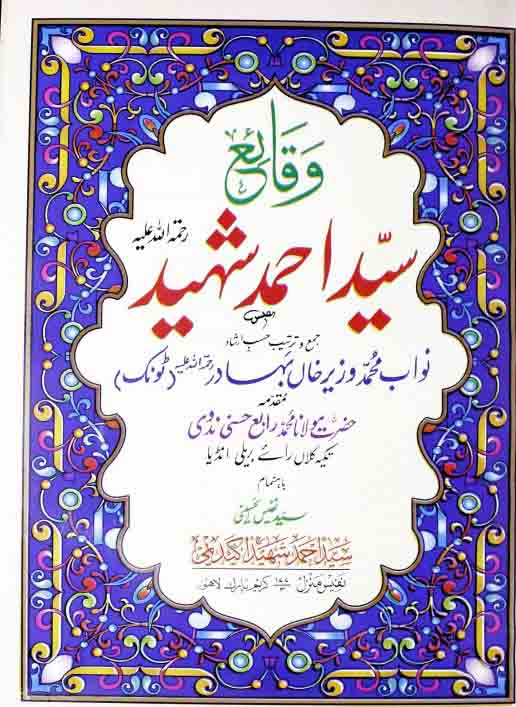 وقائع
سیّد احمد شہید رحمۃ اللہ علیہ
جمع و ترتیب حسب ارشاد
نواب محمد وزیر خاں بہادر رحمۃ اللہ علیہ (ٹونک)
مقدمہ
حضرت مولانا محمد رابع حسنی ندوی
تکیہ کلاں رائے بریلی انڈیا
باہتمام
سید نفیس الحسینی
سید احمد شہید اکیڈمی
نفیس منزل ۱۷۷ کریم پارک لاہور